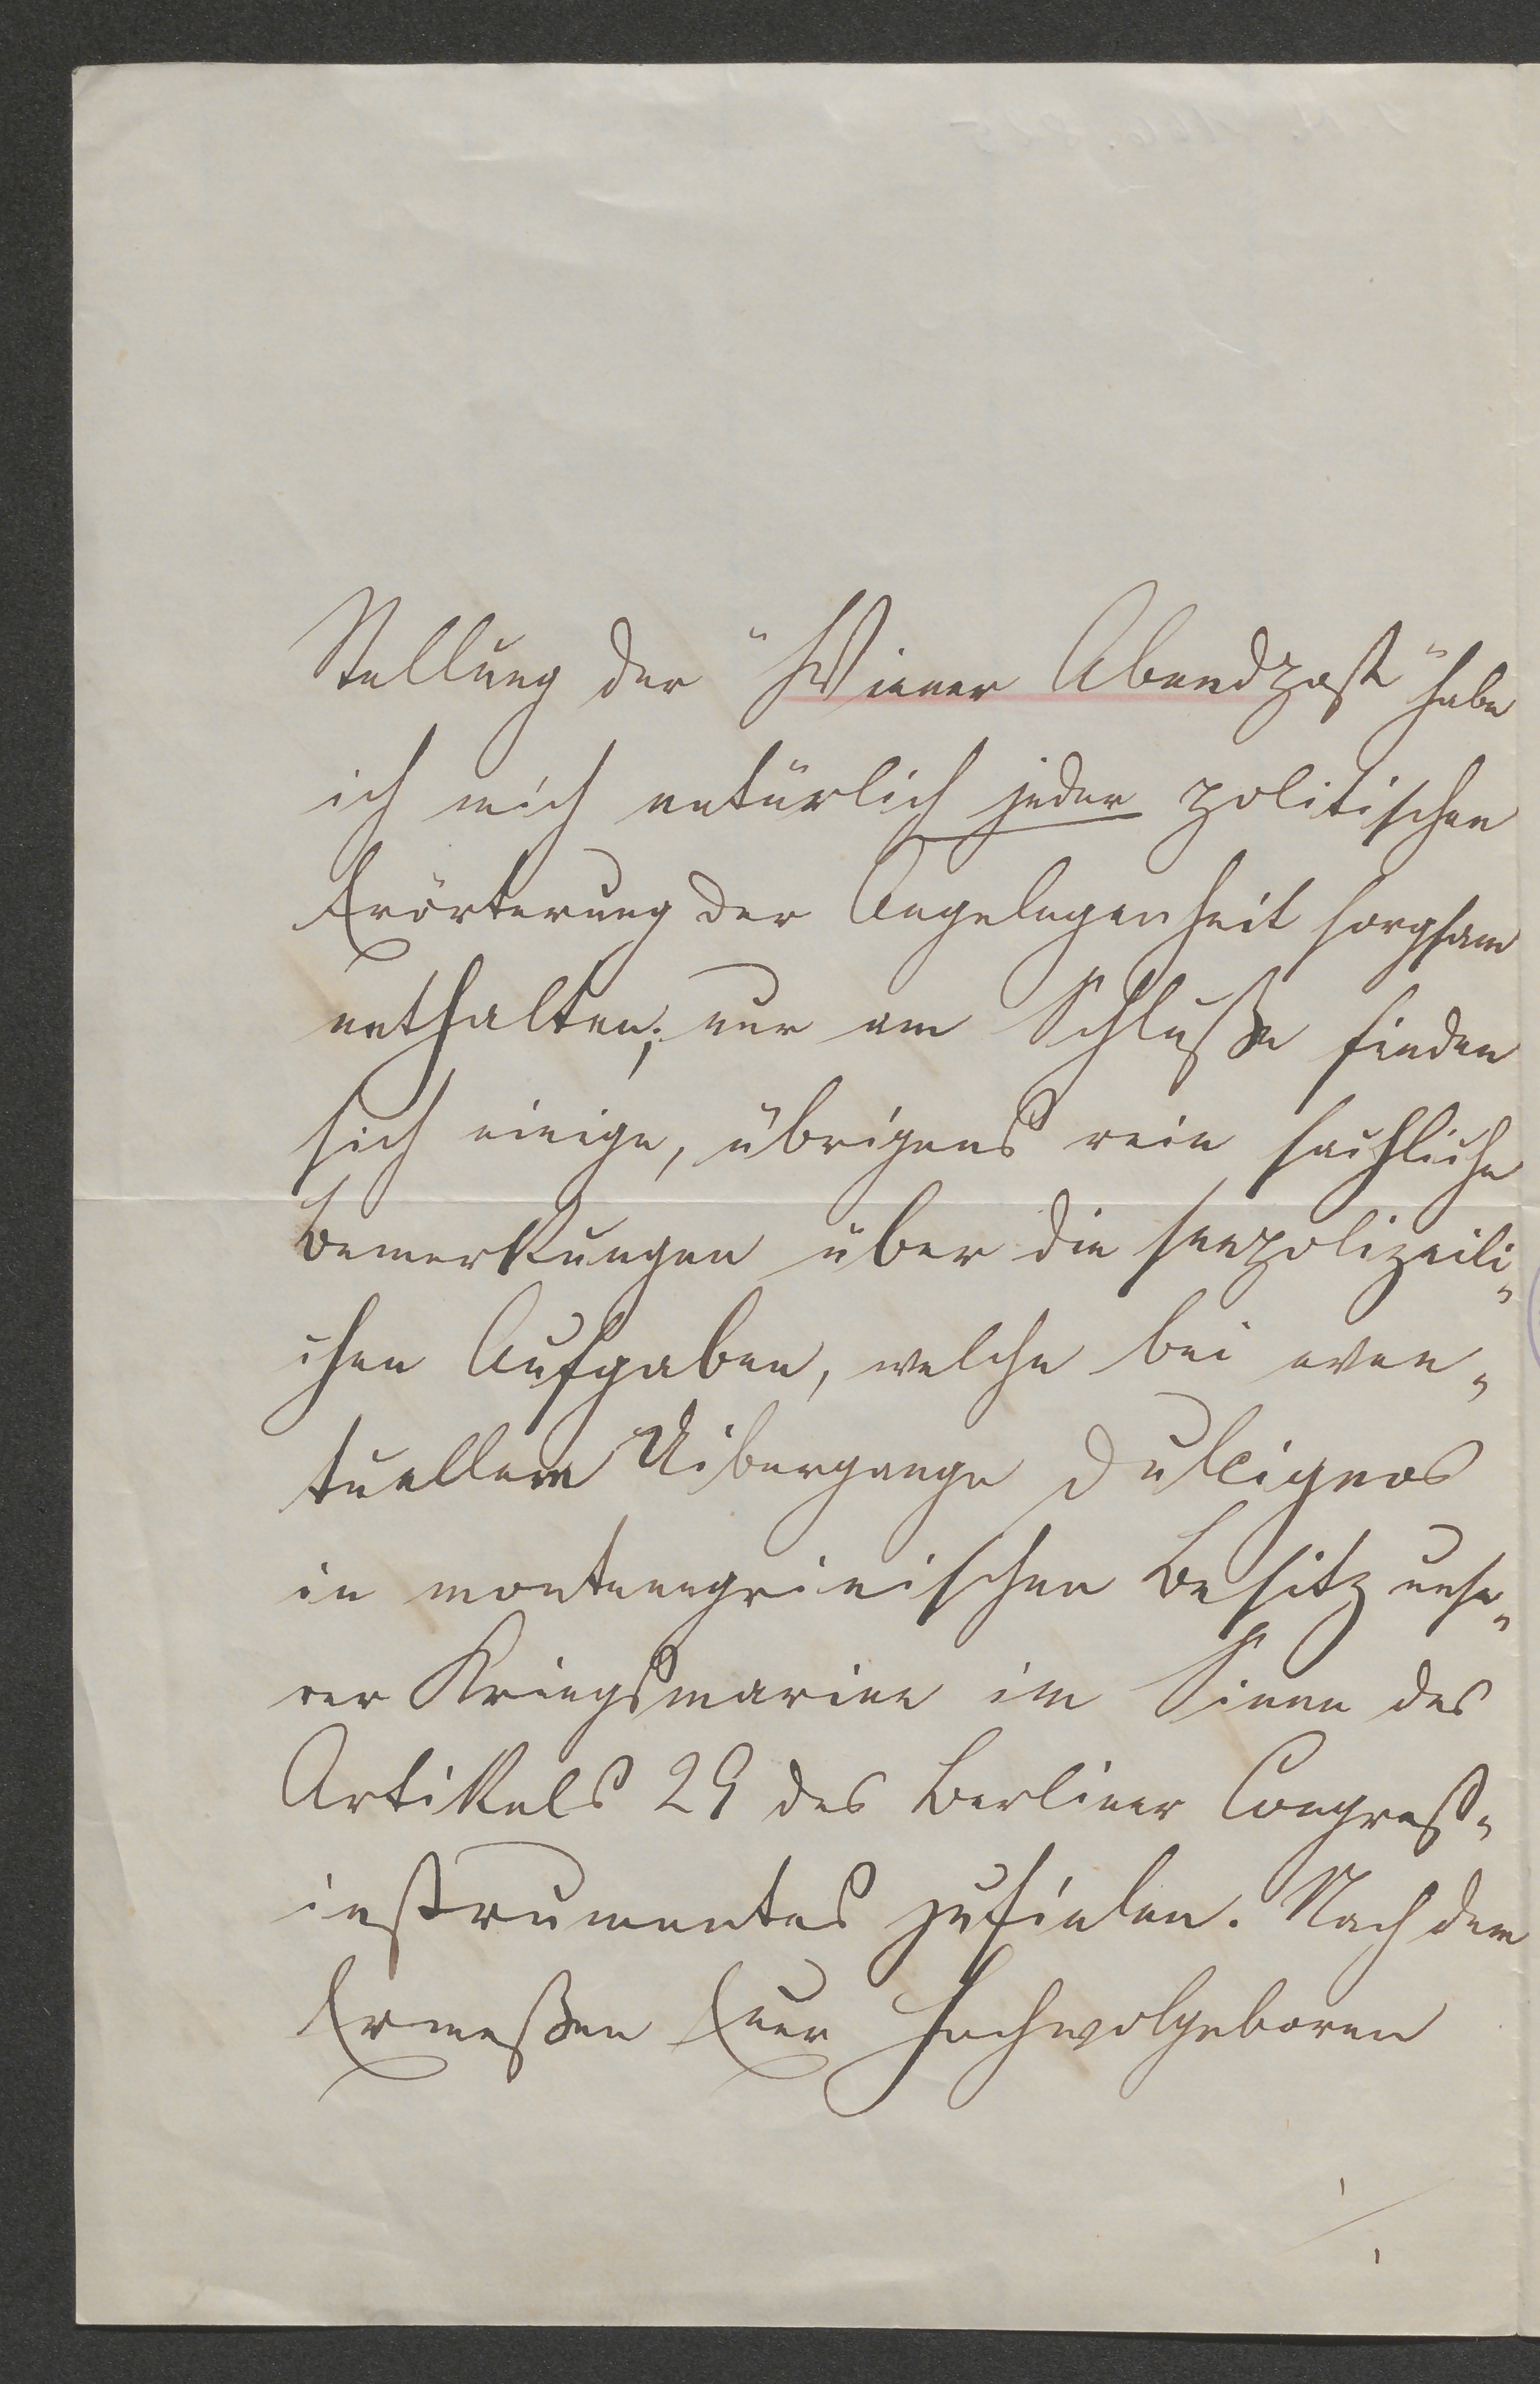 Stellung der "Wiener Abendpost" habe
ich mich natürlich jeder politischen
Erörterung der Angelegenheit sorgsam
enthalten; nur am Schluße finden
sich einige, übrigens rein sachliche
Bemerkungen über die seepolizeili-
chen Aufgaben, welche bei even-
tuellem Uibergange Dulcignos
in montenegrinischen Besitz unse-
rer Kriegsmarine im Sinne des
Artikels 29 des Berliner Congreß-
instrumentes zufielen. Nach dem
Ermeßen Euer Hochwolgeboren